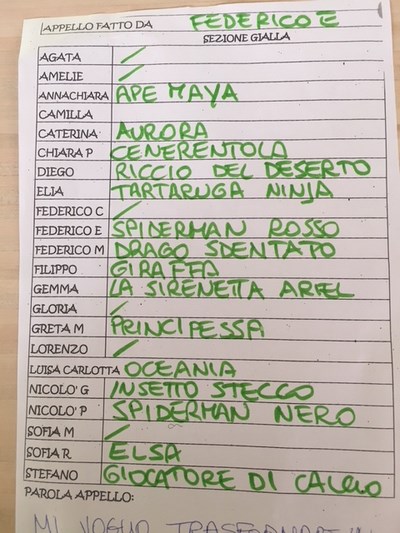 APPELLO FATTO DA FEDERICO E
SEZIONE GIALLA
AGATA /
AMELIE /
ANNACHIARA APE MAYA
CAMILLA
CATERINA AURORA
CHIARA P CENERENTOLA
DIEGO RICCIO DEL DESERTO
ELIA TARTARUGA NINJA
FEDERICO C /
FEDERICO E SPIDERMAN ROSSO
FEDERICO M DRAGO SDENTATO
FILIPPO GIRAFFA
GEMMA LA SIRENETTA ARIEL
GLORIA /
GRETA M PRINCIPESSA
LORENZO /
LUISA CARLOTTA OCEANIA
NICOLO' G INSETTO STECCO
NICOLO' P SPIDERMAN NERO
SOFIA M /
SOFIA R ELSA
STEFANO GIOCATORE DI CALCIO
PAROLA APPELLO:
MI VOGLIO TRASFORMARE IN